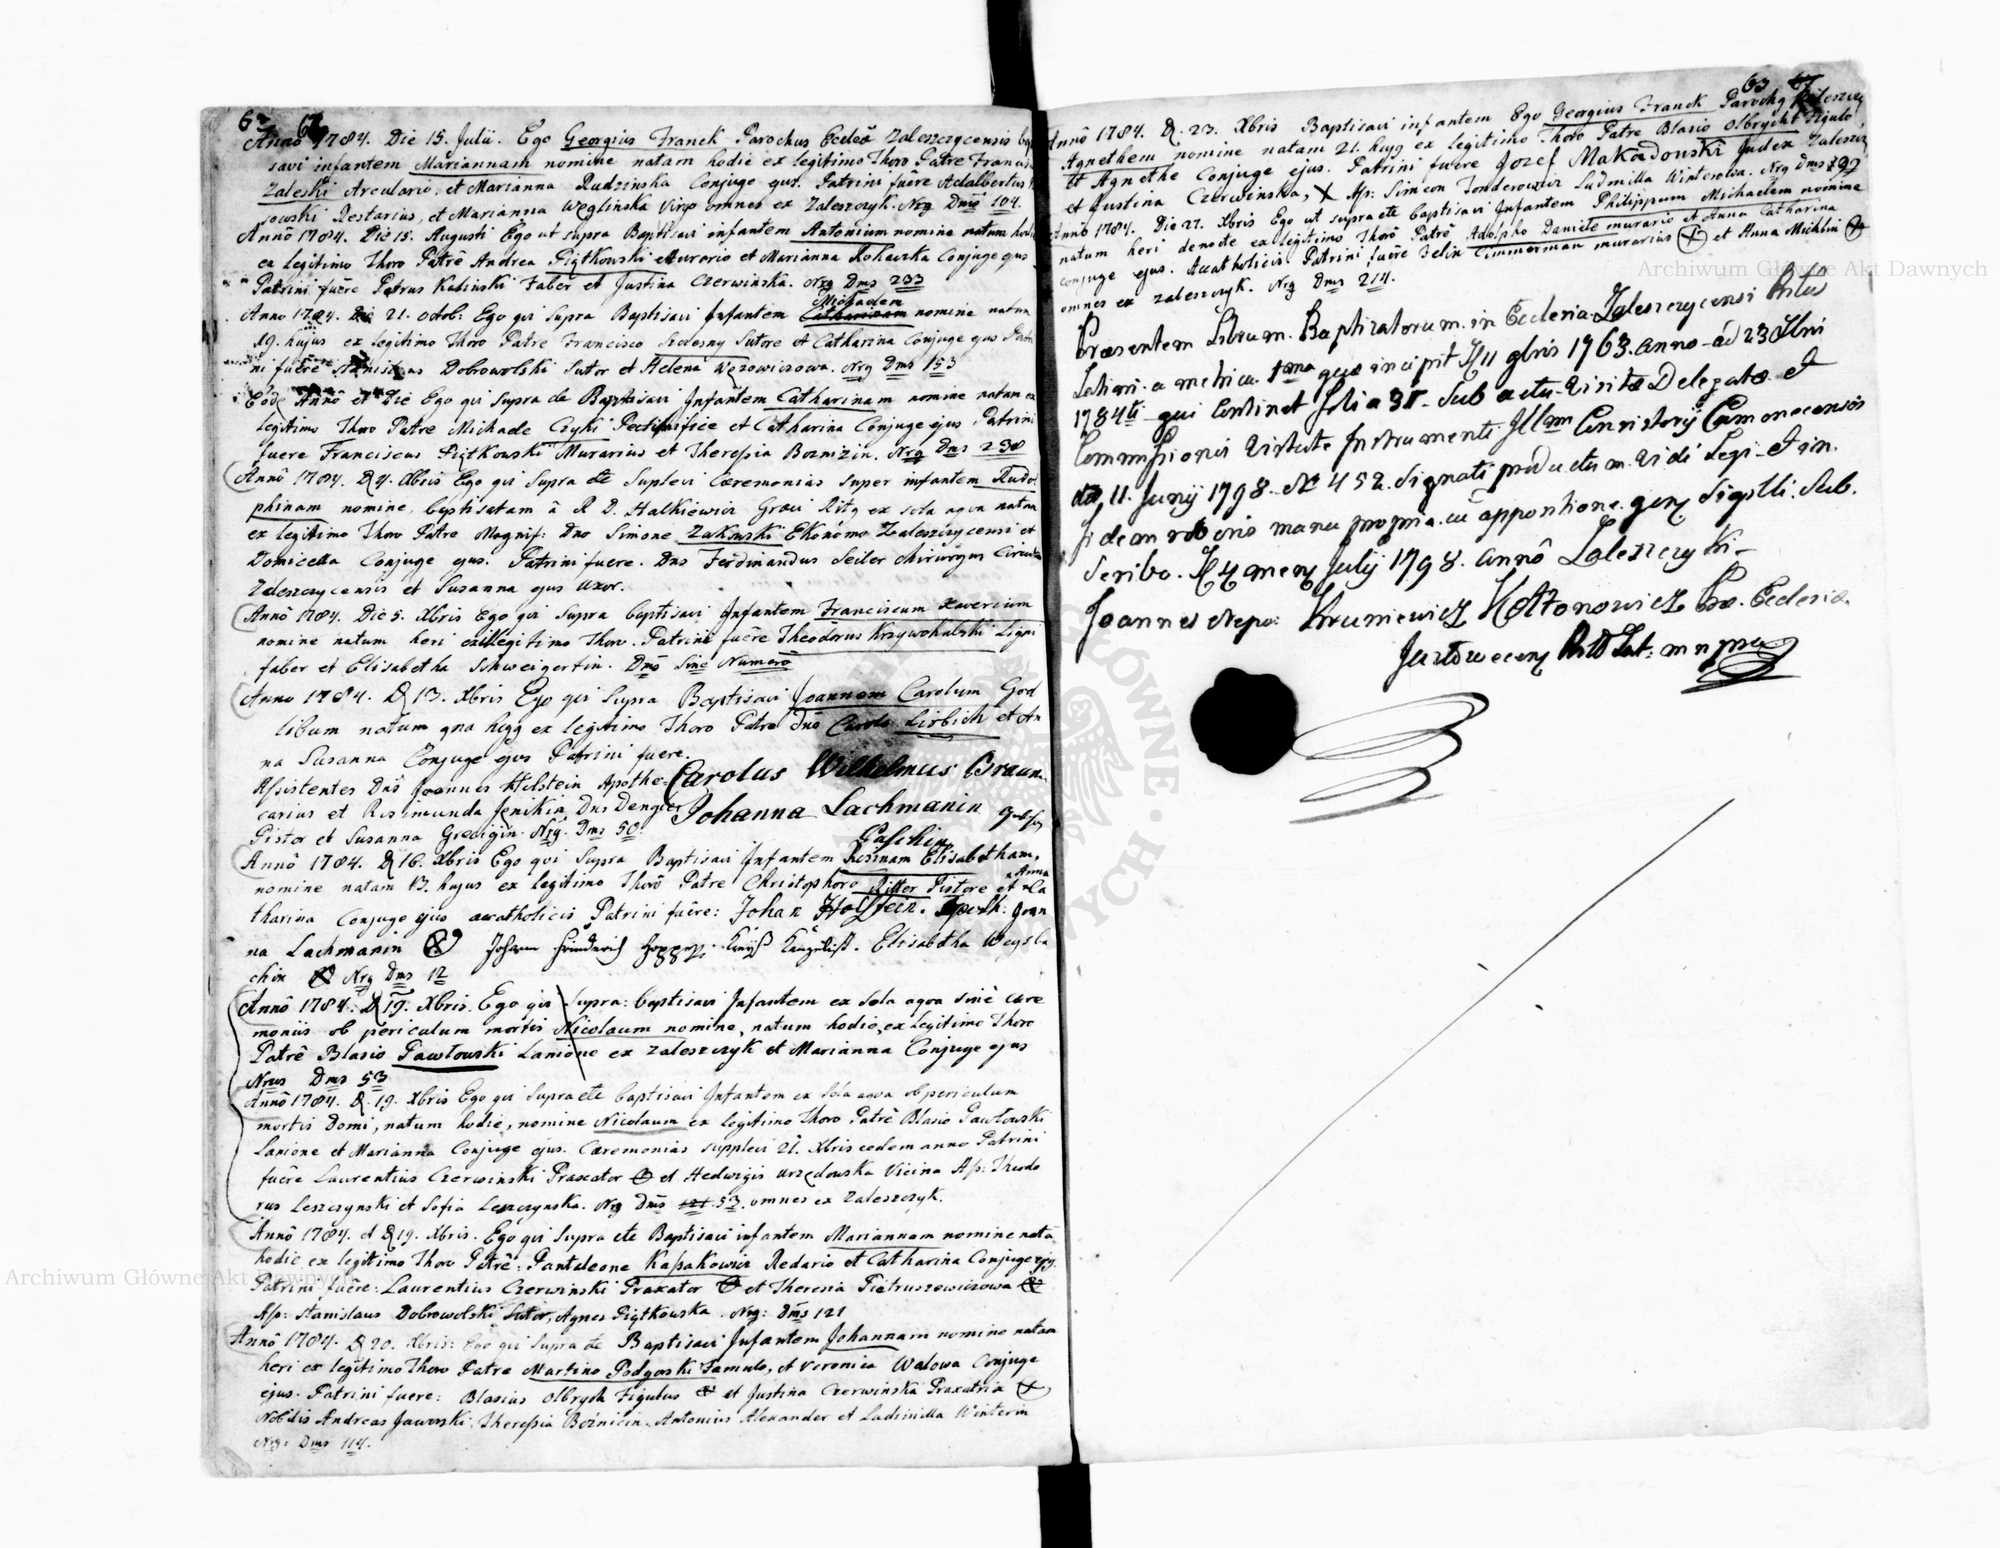 62 62
Anno 1784. Die 15. Julii. Ego Georgius Franck Parochus Ecclae Zaleszczycensis bap
savi infantem Mariannam nomine natam hodie ex legitimo Thoro Patre Francis
Zaleski Arculario, et Marianna Rudzinska Conjuge ejus. Patrini fuêre Adalbertus
sowski Restarius, et Marianna Węglinska Virgo omnes ex Zaleszczyk. Nrg Dms 104.
Annô 1784. Die 15. Augusti Ego ut supra Baptisavi infantem Antonium nomine natum hodi
ex legitimo Thoro Patrê Andrea Piątkowski Murario et Marianna Rohawska Conjuge ejus
Patrini fuêre Petrus Kabinski Faber et Justina Czerwinska. Nrg Dms 233
Michaelem
Anno 1784. Die 21. Octob: Ego qvi supra Baptisavi Infantem Catharinam nomine natum
19. hujus ex legitimo Thoro Patre Francisco Siedesny Sutore et Catharina Conjuge ejus Patri
ni fuêre Stanislaus Dobrowolski Sutor et Helena Węzowiczowa. Nrg Dms 153
Eode Annô et Die Ego qvi supra de Baptisavi Infantem Catharinam nomine natam ex
legitimo Thoro Patre Michaele Czyki Pectinifice et Catharina Conjuge ejus Patrini
fuere Franciscus Piątkowski Murarius et Theresia Boznizin. Nrg Dms 230
Annô 1784. D 4. Xbris Ego qvi Supra etc Suplevi Ceremonias super infantem Rudol
phinam nomine, baptisatam â R D. Halkiewicz Graeci Ritg ex sola aqva natam
ex legitimo Thoro Patre Magnif: Dno Simone Zakowski Ekonomo Zaleszczycensi et
Domicella Conjuge ejus. Patrini fuere. Dns Ferdinandus Seiler Chirurgus Circuli
Zaleszczycensis et Susanna ejus Uxor.
Annô 1784. Die 5. Xbris Ego qvi Supra baptisavi Infantem Franciscum Xaverium
nomine natum heri exillegitimo Thoro. Patrini fuêre Theodorus Krzywohubski Ligni
faber et Elisabetha Schweigertin. Dms Sine Numerô
Anno 1784. D 13. Xbris Ego qvi Supra Baptisavi Joannem Carolum God
libum natum qna hujg ex legitimo Thoro Patre Dnô Carolo Lirbich et An
na Susanna Conjuge ejus Patrini fuere.
Asistentes Dnŝ Joannes Holstein Apothe- Carolus Wilhelmus Braun
carius et Rosimunda Jenikin, Dns Dengler Johanna Lachmanin
Pistor et Susanna Gredigin. Nrg. Dms 50.
Annô 1784. D 16. Xbris Ego qvi Supra Baptisavi Infantem Rosinam Elisabetham,
nomine natam 13. hujus ex legitimo Thorô Patre Christophoro Ritter Pistore et Anna Ca
tharina Conjuge ejus accatholicis Patrini fuêre: Johan Holstein. Apoth: Joan
na Lachmanin Elisabetha Weysba
chin Nrg Dms 12
Annô 1784. D 19. Xbris. Ego qvi Supra: baptisavi Infantem ex sola aqva sinè cære
moniis ob periculum mortis Nicolaum nomine, natum hodie, ex legitimo Thoro
Patrê Blasio Pawłowski Lanione ex Zaleszczyk et Marianna Conjuge ejus
Nrus Dms 53
Annô 1784. D. 19. Xbris Ego qvi Supra etc baptisavi Infantem ex sola aqva ob periculum
mortis domi, natum hodie, nomine Nicolaum ex legitimo Thoro Patrê Blasio Pawłowski
Lanione et Marianna Conjuge ejus. Cæremonias supplevi 21. Xbris eodem anno Patrini
fuêre Laurentius Czerwinski Praxator et Hedwigis Urzędowska Vicina Ass: Theodo
rus Leszczynski et Sofia Leszczynska. Nrg Dmŝ 121 53. omnes ex Zaleszczyk.
Annô 1784. et D 19. Xbris. Ego qvi Supra etc Baptisavi infantem Mariannam nomine natâ
hodie ex legitimo Thoro Patrê: Pantaleone Kasakowicz Redario et Catharina Conjuge ejg.
Patrini fuêre: Laurentius Czerwinski Praxator et Theresia Pietruszewiczowa
Ass: Stanislaus Dobrowolski Sutor, Agnes Piątkowska. Nrg: Dms 121
Annô 1784. D 20. Xbris: Ego qvi Supra de Baptisavi Infantem Johannam nomine natam
heri ex legitimo Thoro Patre Martino Podgorski Famulo, et Veronica Walowa Conjuge
ejus. Patrini fuere: Blasius Olbrych Figulus et Justina Czerwinska Praxatrix
Nobilis Andreas Jaworski. Theresia Boźnicin. Antonius Alexander et Ludmilla Winterin
Nrg: Dms 114.
63 63
Annô 1784. D. 23. Xbris Baptisavi infantem Ego Georgius Franck Parochg Zaleszczy
Agnethem nomine natam 21. hujg ex legitimo Thoro Patre Blasio Olbrycht Figulo
et Agnethe Conjuge ejus. Patrini fuêre Jozef Makadonski Judex Zaleszcz
et Justina Czerwinska, Ass: Simeon Tonderowicz Ludmilla Winterowa. Nrg Dms 199
Annô 1784. Die 27. Xbris Ego ut supra etc baptisavi Infantem Philippum Michaelem nomine
natum heri denocte ex legitimo Thorô Patrê Adolpho Daniele murario et Anna Catharina
conjuge ejus. Accatholicis Patrini fuêre Belin Timmerman murarius et Anna Michlin
omnes ex Zaleszczyk. Nrg Dms 214.
Præsentem Librum Baptizatorum in Ecclesia Zaleszczycensi Ritus
Latini a metrica 1ma quæ incipit D 11 9bris 1763 anno ad 23 Xbri
1784ti qui Continet folia 35 Sub actu Visitæ Delegatæ et
Commissionis Virtute Instrumenti Illmi Consistorij Camenecensis
ddo 11 Junij 1798 No 452 Signati productum Vidi Legi et in
fidem roboris manu propria cu appositione genz Sigilli Sub.
Scribo. D 4 mens Julij 1798 annô Zaleszczyki
Joannes Nepo: Krumiewicz K Antonowicz Præ. Ecclesiæ
Jazłowecenz Rit Lat: m ppria
Archiwum Główne Akt Dawnych
Archiwum Główne Akt Dawnych